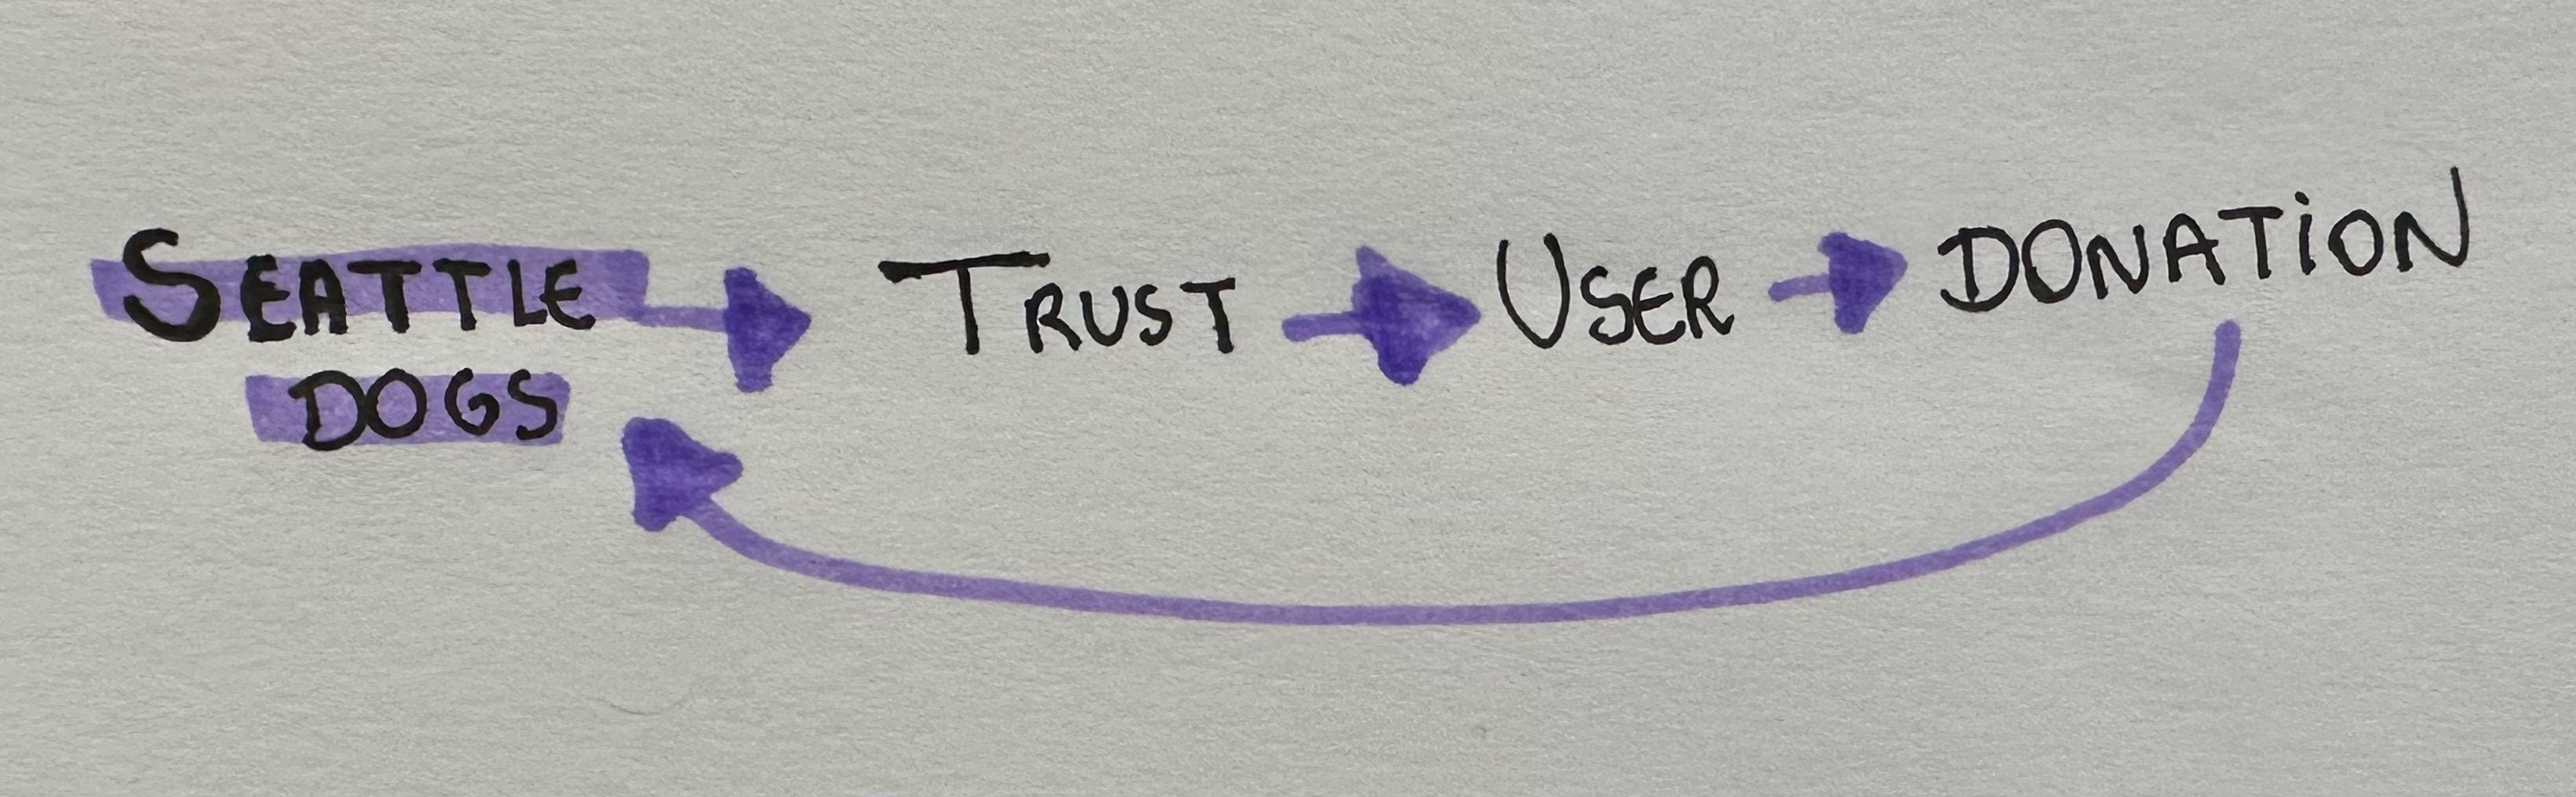 SEATTLE
DOGS
TRUST
USER
DONATiON